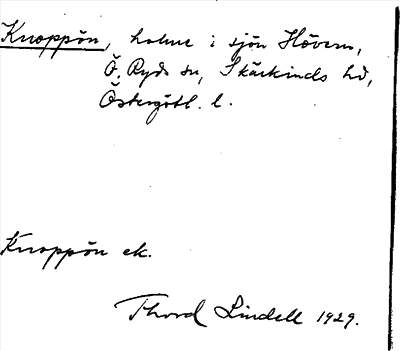 Knoppön, holme i sjön Hövern,
Ö. Ryds sn, Skärkinds hd,
Östergötl. l.
Knoppön ek.
Thord Lindell 1929.